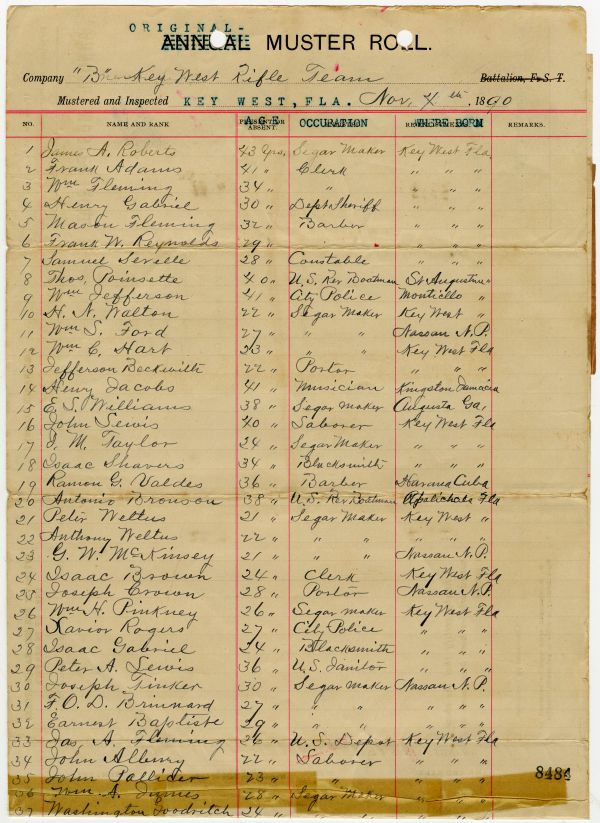 ORIGINAL-
ANNUAL MUSTER ROLL.
Company "B" Key West Rifle Team Battalion, F. S. T.
Mustered and Inspected KEY WEST, FLA. Nov, 4th, 1890
NO. NAME AND RANK AGE OCCUPATION WHERE BORN REMARKS.
1 James A. Roberts 43 Yrs, Segar Maker Key West Fla
2 Frank Adams 41 " Clerk " " "
3 Wm Fleming 34 " " " " "
4 Henry Gabriel 30 " Dept Sheriff " " "
5 Mason Fleming 32 " Barber " " "
6 Frank W. Reynolds 29 " " " " "
7 Samuel Sevelle 28 " Constable " " "
8 Thos, Poinsette 40 " U.S. Rev Boatman St Augustine "
9 Wm Jefferson 41 " City Police Monticello "
10 H. N. Walton 22 " Segar Maker Key West "
11 Wm S. Ford 27 " " " Nassau N.P.
12 Wm C. Hart 23 " " " Key West Fla
13 Jefferson Beckwith 22 " Portor " " "
14 Henry Jacobs 41 " Musician Kingston Jamaica
15 E. S. Williams 38 " Segar maker Augusta Ga,
16 John Lewis 40 " Laborer Key West Fla
17 J. M. Taylor 24 " Segar Maker " " "
18 Isaac Shavers 34 " Blacksmith " " "
19 Ramon G. Valdes 36 " Barber Havana Cuba
20 Antonio Bronson 38 " U.S. Rev Boatman Apalichola Fla
21 Peter Weltus 21 " Segar Maker Key West "
22 Anthony Weltus 22 " " " " " "
23 G. W. McKinsey 21 " " " Nassau N.P.
24 Isaac Brown 24 " Clerk Key West Fla
25 Joseph Crown 28 " Portor Nassau N.P.
26 Wm H. Pinkney 26 " Segar maker Key West Fla
27 Xavior Rogers 27 " City Police " " "
28 Isaac Gabriel 24 " Blacksmith " " "
29 Peter A. Lewis 36 " U.S. Janitor " " "
30 Joseph Tinker 30 " Segar Maker Nassau N.P.
31 F. O. D. Brinnard 27 " " " " " "
32 Earnest Baptiste 29 " " " " " "
33 Jas, A. Fleming 26 " U.S. Depot Key West Fla
34 John Albury 22 " Laborer " " "
35 John Pallider 23 " " " " "
36 Wm A. 28 " Segar Maker " " "
37 Washington Goodritch 24 " " " " " "
8484